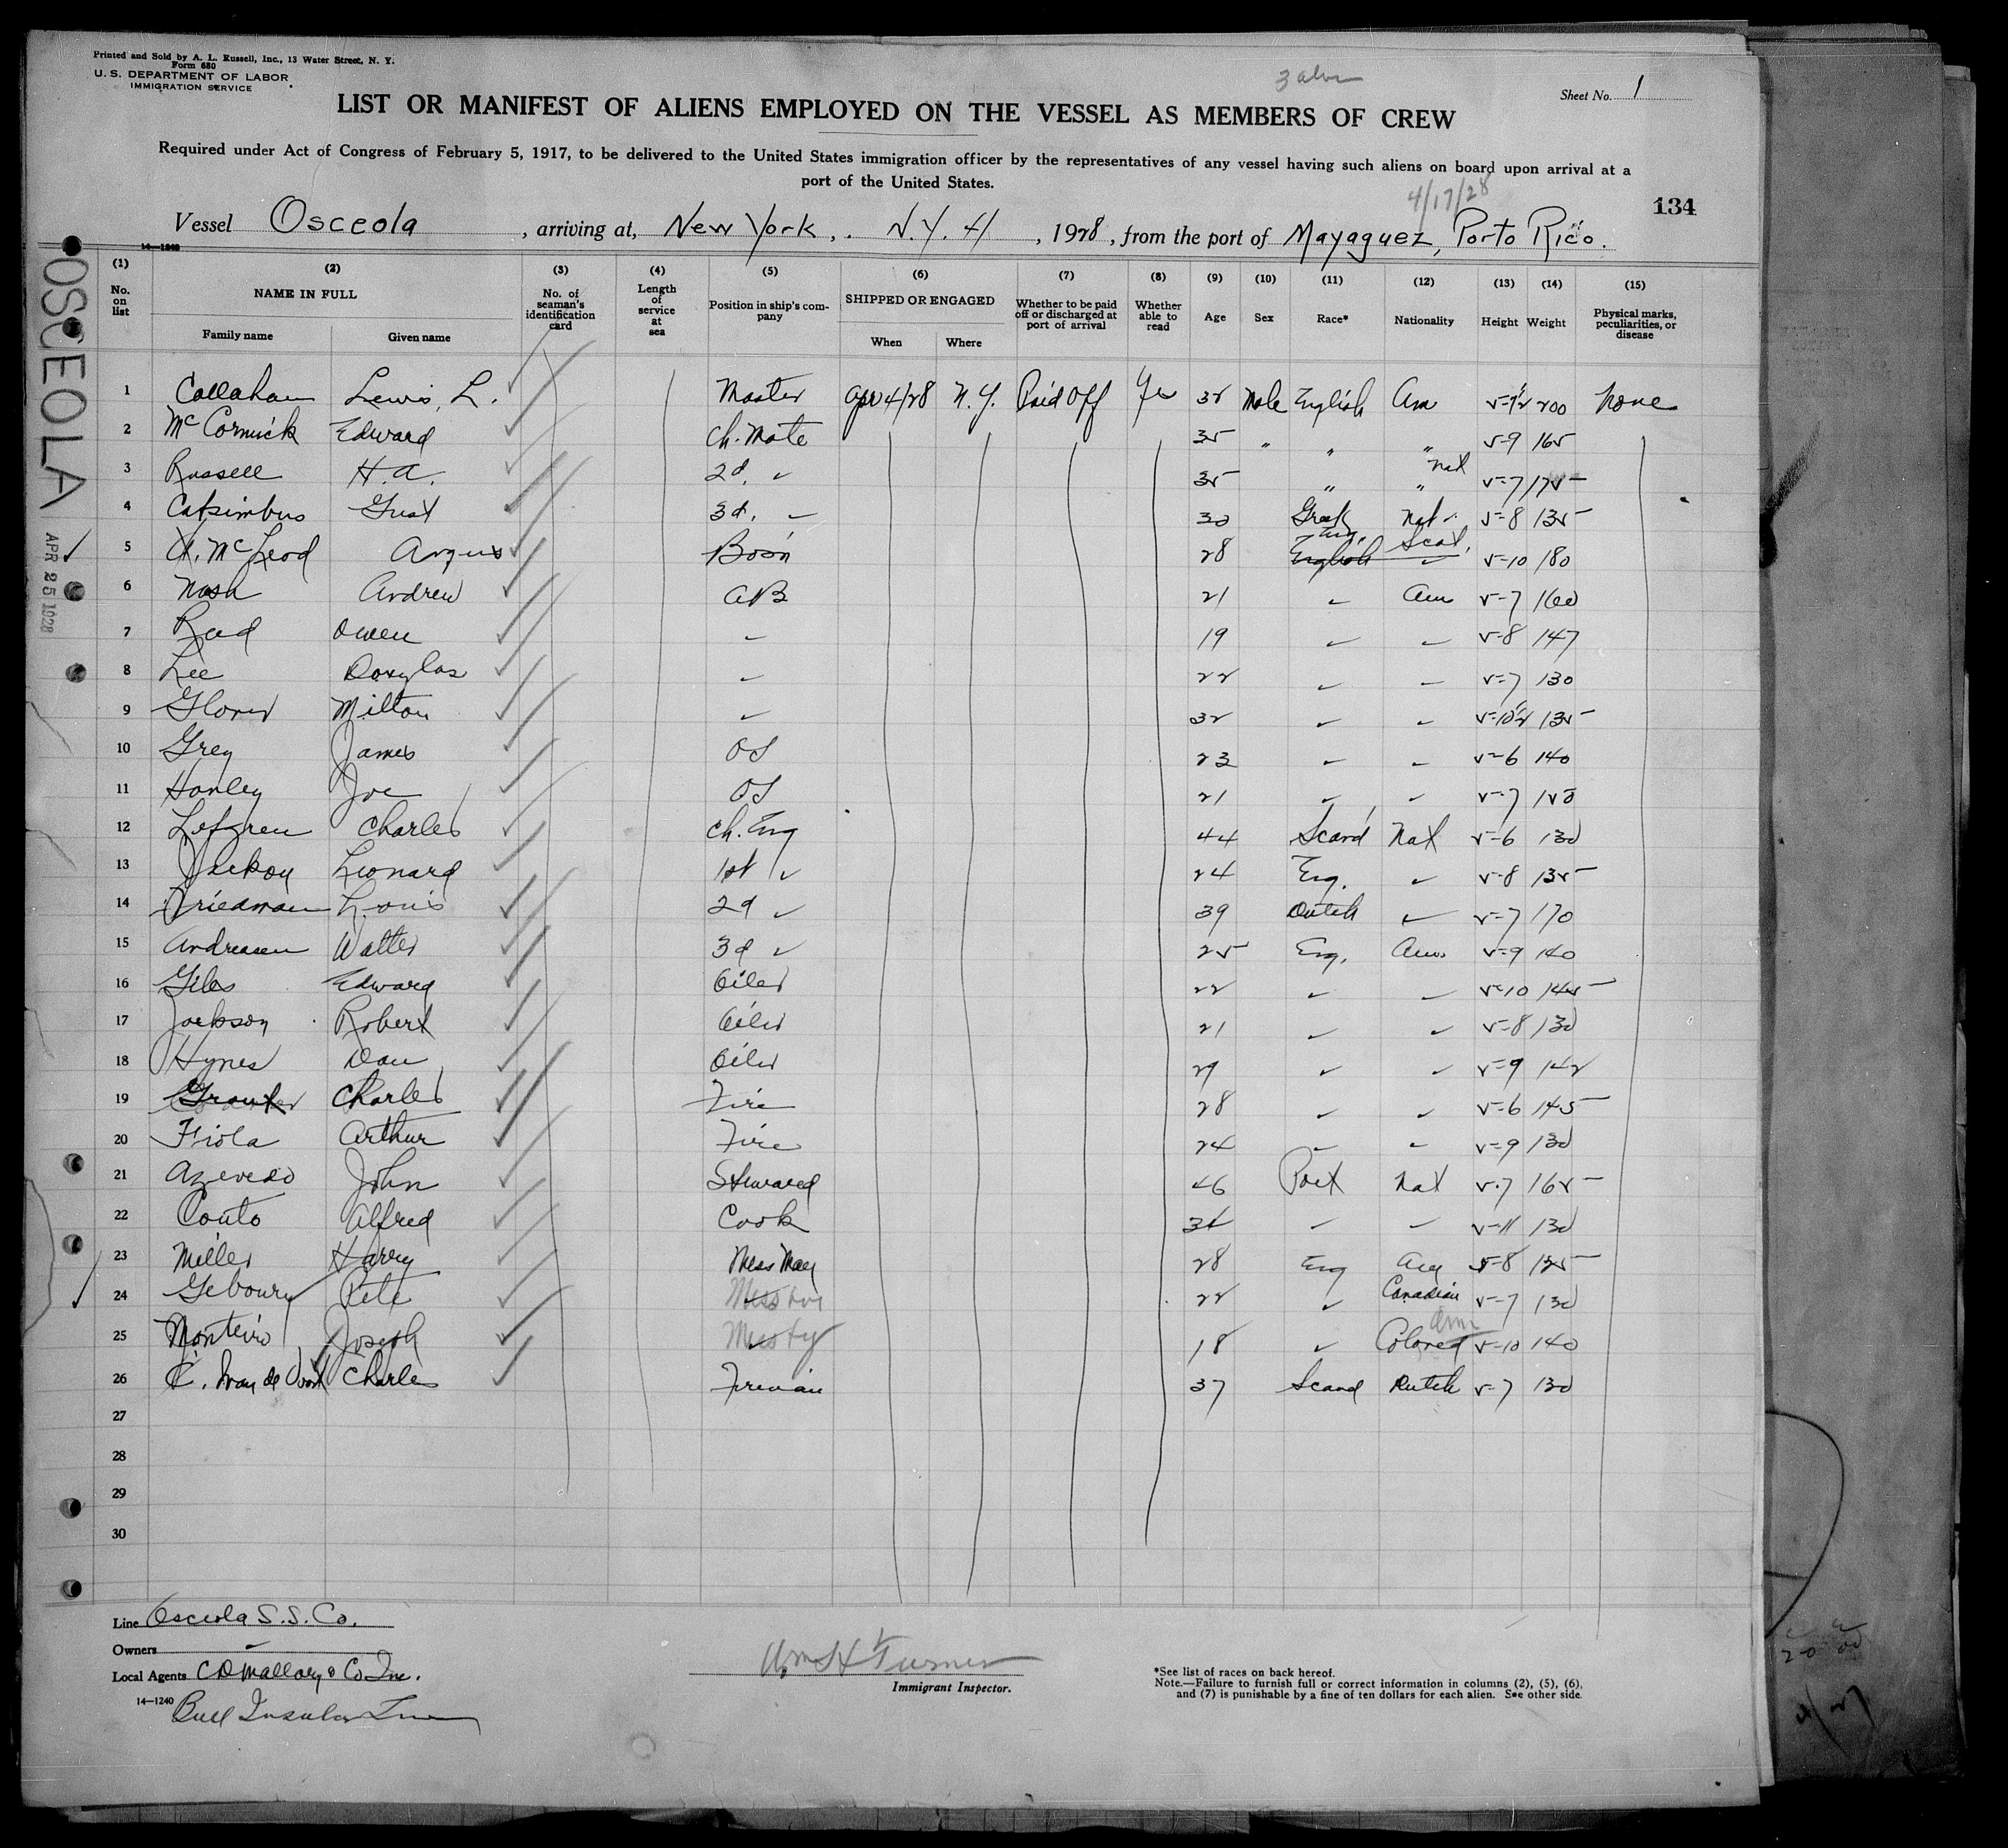 Printed and Sold by A. L. Russell, Inc., 13 Water Street, N. Y.
Form 680
U. S. DEPARTMENT OF LABOR
IMMIGRATION SERVICE
Sheet No. 1
LIST OR MANIFEST OF ALIENS EMPLOYED ON THE VESSEL AS MEMBERS OF CREW
Required under Act of Congress of February 5, 1917, to be delivered to the United States immigration officer by the representatives of any vessel having such aliens on board upon arrival at a
port of the United States.
4/17/28
134
Vessel Osceola, arriving at, New York, N.Y., 1928, from the port of Mayaguez, Porto Rico.
14—1240
OSCEOLA
APR 25 1928
(1) (2) (3) (4) (5) (6) (7) (8) (9) (10) (11) (12) (13) (14) (15)
No. on list NAME IN FULL No. of seaman's identification card Length of service at sea Position in ship's company SHIPPED OR ENGAGED Whether to be paid off or discharged at port of arrival Whether able to read Age Sex Race* Nationality Height Weight Physical marks, peculiarities, or disease
Family name Given name When Where
1 Callahan Lewis, L. Master Apr 4/28 N.Y. Paid Off Yes 32 Male English Am 5-9½ 200 None
2 McCormick Edward Ch. Mate 35 " " " 5-9 165
3 Russell H. A. 2d. ✓ 35 " " Nat 5-7 175
4 Catsimbus Gust 3d. Greek Nat 5-8 135
5 McLeod Angus Bos'n 28 English Eng. Scot. 5-10 180
6 Nash Andrew AB 21 Am 5-7 160
7 Owen 19 5-8 147
8 Lee Douglas 22 5-7 130
9 Glover Milton 32 5-10½ 135
10 Grey James OS 23 5-6 140
11 Hanley Joe OS 21 5-7 150
12 Lofgren Charles Ch. Eng 44 Scand Nat 5-6 130
13 Leonard 1st ✓ 24 Eng. ✓ 5-8 135
14 Friedman Louis 2d ✓ 39 Dutch ✓ 5-7 170
15 Andreasen Walter 3d ✓ 25 Eng. Am. 5-9 140
16 Giles Edward Oiler 22 5-10 145
17 Jackson Robert Oiler 21 5-8 130
18 Hynes Dan Oiler 29 5-9 142
19 Grant Charles Fire 28 5-6 145
20 Fiola Arthur Fire 24 5-9 130
21 Azevedo John Steward 46 Port Nat 5-7 165
22 Couto Alfred Cook 5-11 130
23 Miller Harry Mess Man 28 Eng Am 5-8 125
24 Pete 22 Canadian 5-7 130
25 Monteiro Joseph 18 Colored Am 5-10 140
26 Charles Fireman 37 Scand Dutch 5-7 130
27
28
29
30
Line Osceola S.S. Co.
Owners
Local Agents C D Mallory & Co Inc.
14—1240
Bull Insular Line
Wm H Turner
Immigrant Inspector.
*See list of races on back hereof.
Note.—Failure to furnish full or correct information in columns (2), (5), (6),
and (7) is punishable by a fine of ten dollars for each alien. See other side.